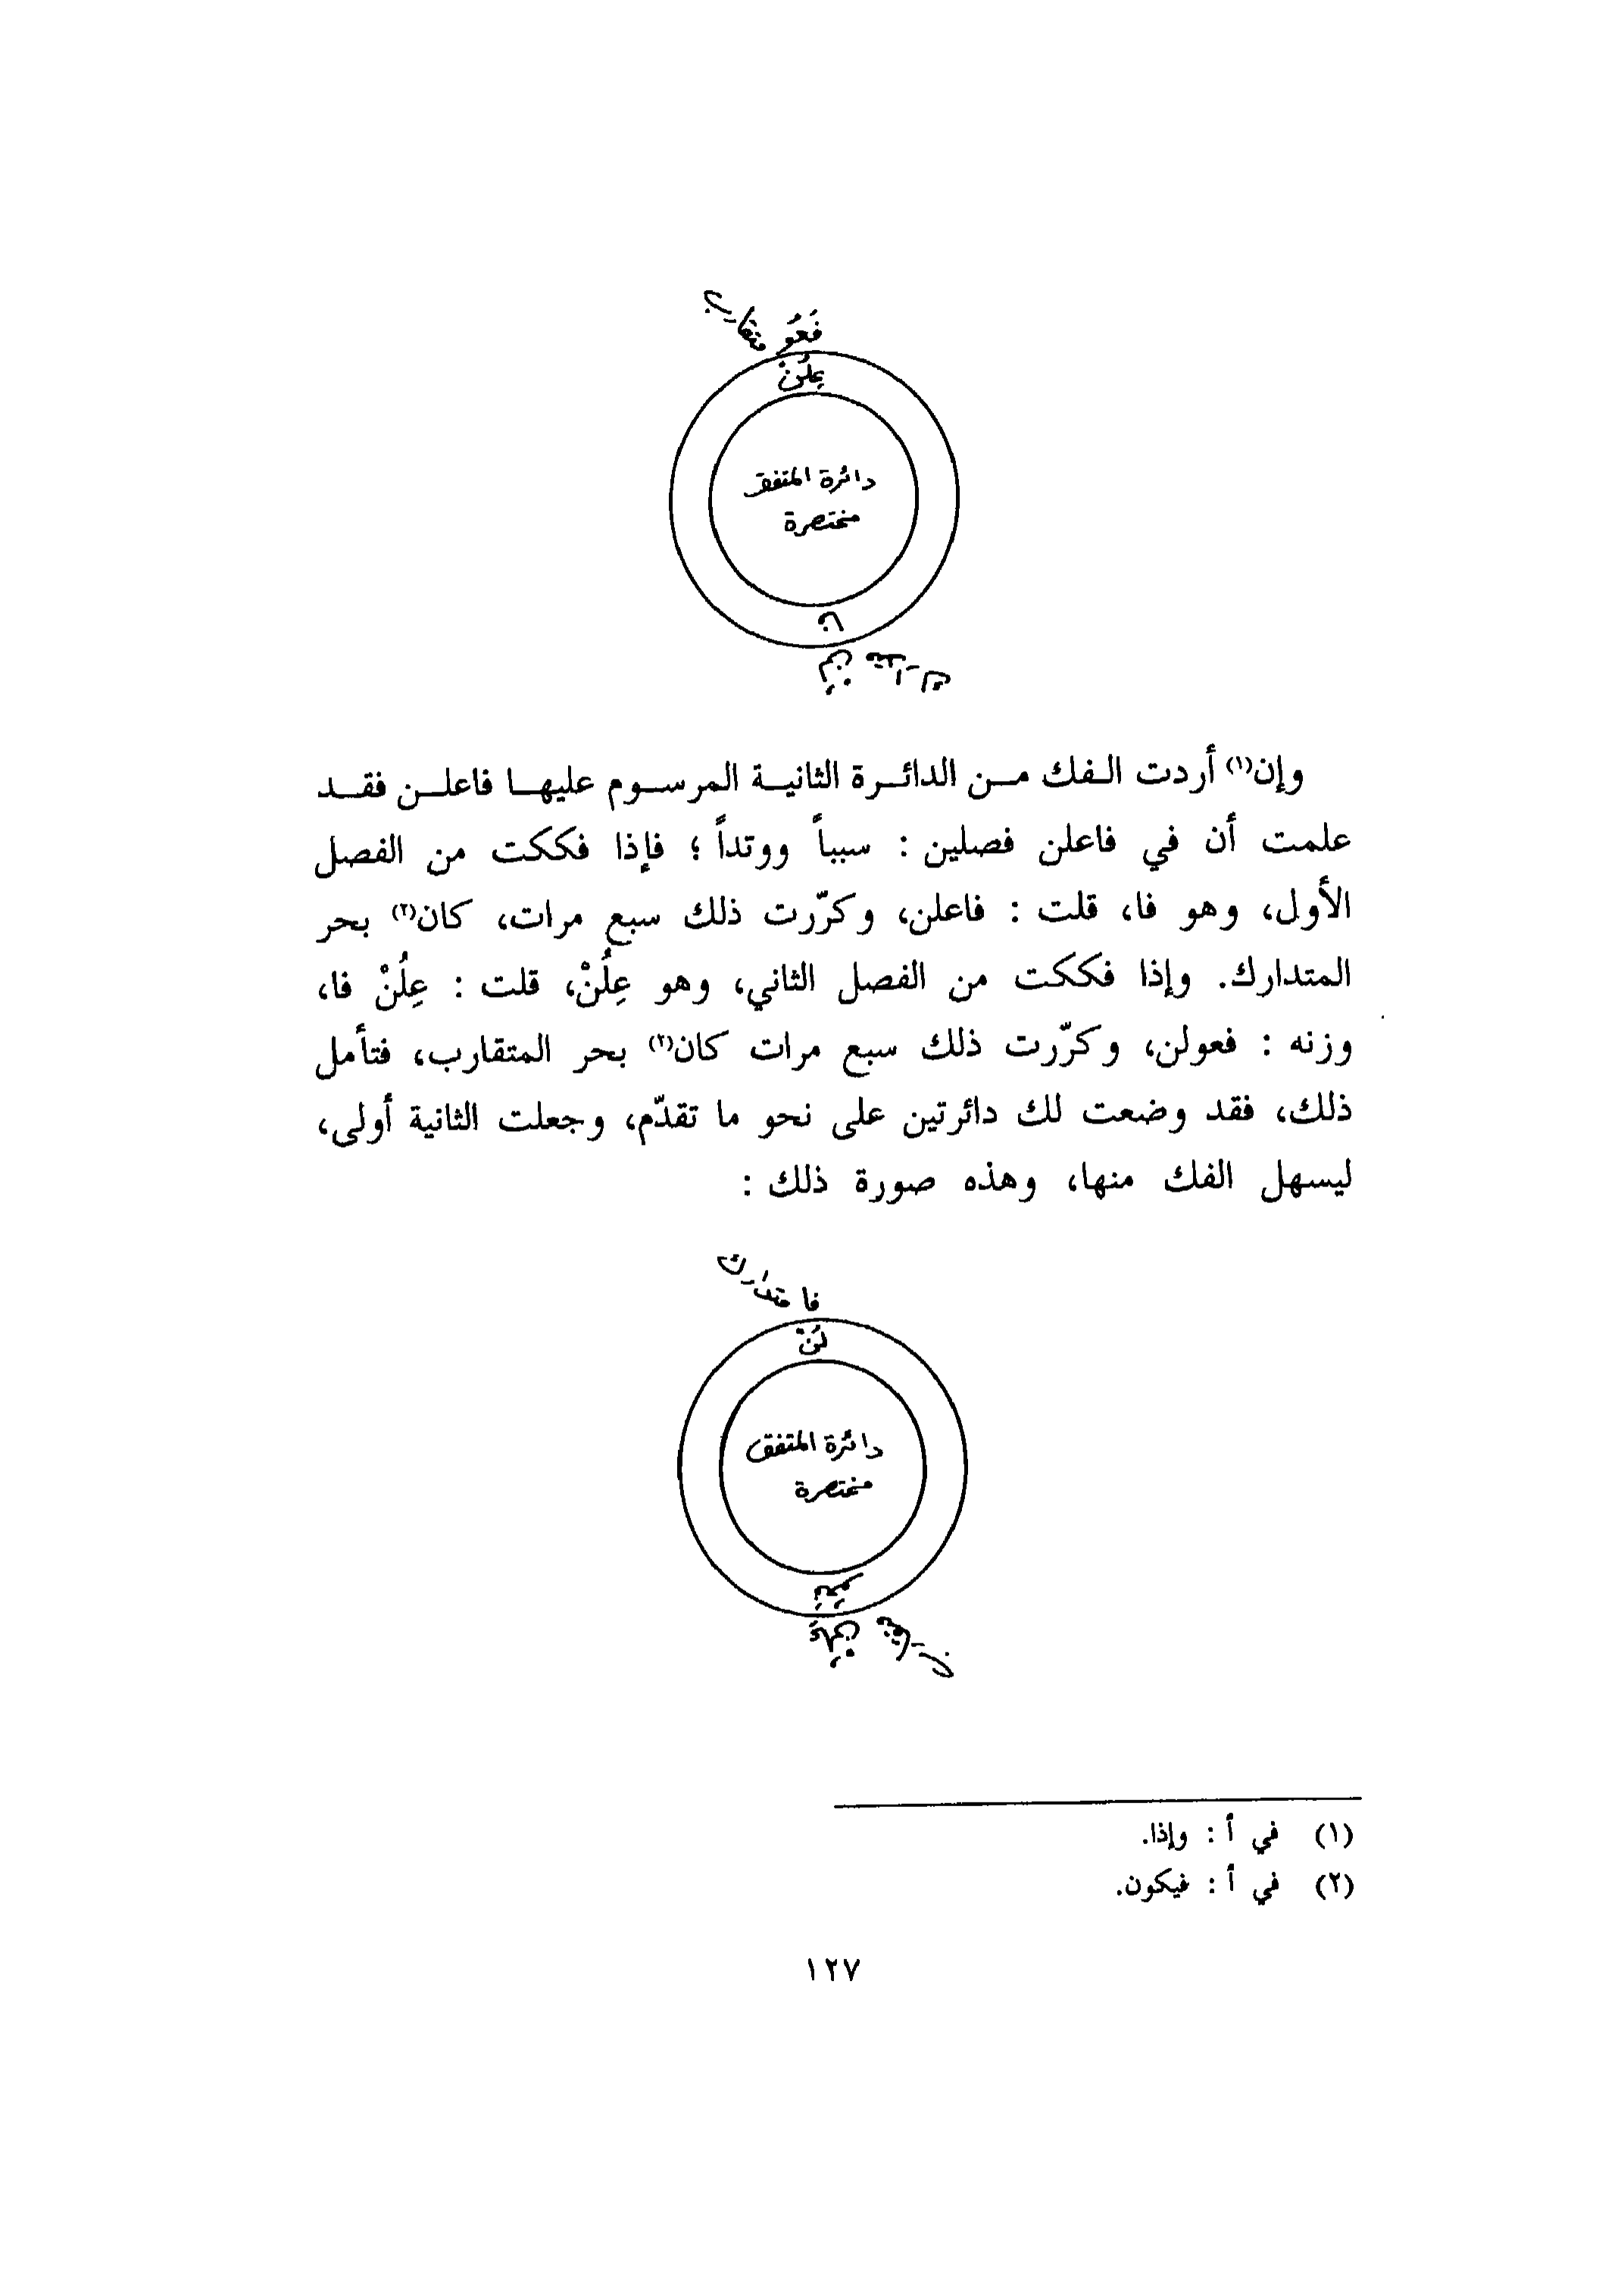 فَعُو متقارب
عِلُنْ
دائرة المتفق
مختصرة
فا
لُنْ متدارك
وإن(١) أردت الفك من الدائرة الثانية المرسوم عليها فاعلن فقد
علمت أن في فاعلن فصلين : سبباً ووتداً ؛ فإذا فككت من الفصل
الأول، وهو فا، قلت : فاعلن، وكرّرت ذلك سبع مرات، كان(٢) بحر
المتدارك. وإذا فككت من الفصل الثاني، وهو عِلُنْ، قلت : عِلُنْ فا،
وزنه : فعولن، وكرّرت ذلك سبع مرات كان(٢) بحر المتقارب، فتأمل
ذلك، فقد وضعت لك دائرتين على نحو ما تقدّم، وجعلت الثانية أولى،
ليسهل الفك منها، وهذه صورة ذلك :
فا متدارك
لُنْ
دائرة المتفق
مختصرة
فَعُو
عِلُنْ متقارب
(١) في أ : وإذا.
(٢) في أ : فيكون.
١٢٧